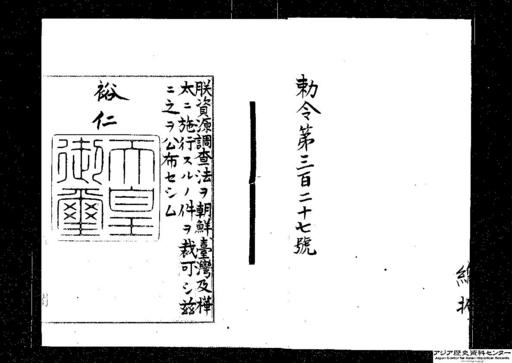 勅令第三百二十七號
朕資源調査法ヲ朝鮮臺灣及樺
太ニ施行スルノ件ヲ裁可シ茲
ニ之ヲ公布セシム
裕仁
天皇
御璽
アジア歴史資料センター
Japan Center for Asian Historical Records